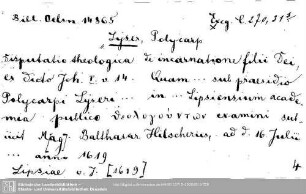 Bibl. Oelsn. 14865
Exeg. C. 270, 31
Lyser, Polycarp
Disputatio theologica de incarnatione filii Dei,
ex dicto Joh. I. v. 14. Quam ... sub praesidio
Polycarpi Lyseri ... in ... Lipsiensium academia
publico examini subiicit
Mag. Balthasar Hilscherus, ad d. 16 Julii
... anno 1619
Lipsiae o. J. [1619]
4